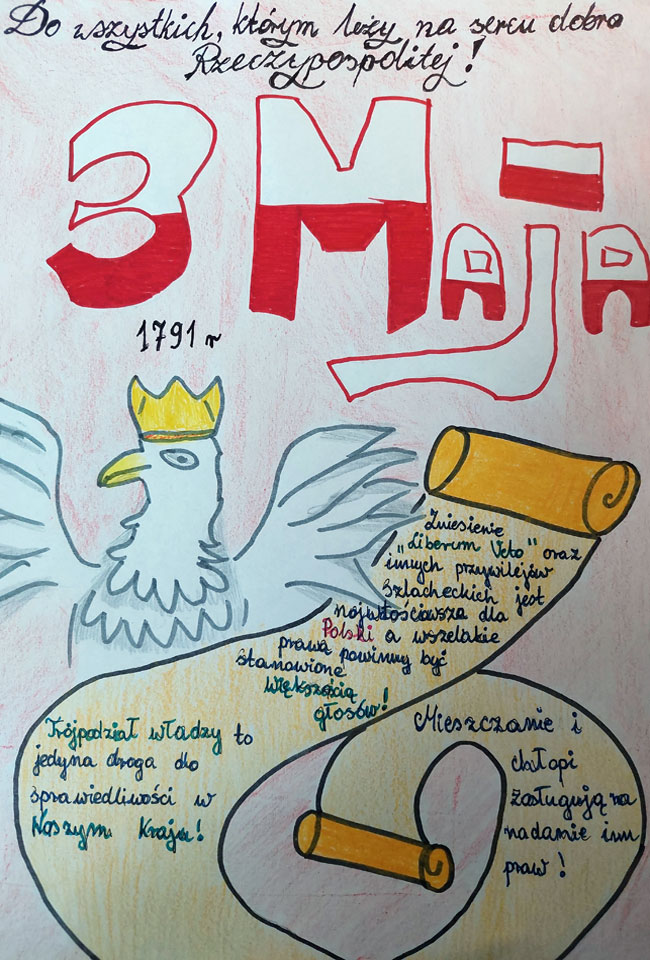 Do wszystkich, którym leży na sercu dobro
Rzeczypospolitej!
3 Maja
1791 r
Zniesienie
„Liberum Veto" oraz
innych przywilejów
szlacheckich jest
najwłościwsze dla
Polski a wszelakie
prawa powinny być
stanowione
większością
głosów!
Trójpodział władzy to
jedyna droga do
sprawiedliwości w
Naszym Kraju!
Mieszczanie i
chłopi
zasługują na
nadanie im
praw!